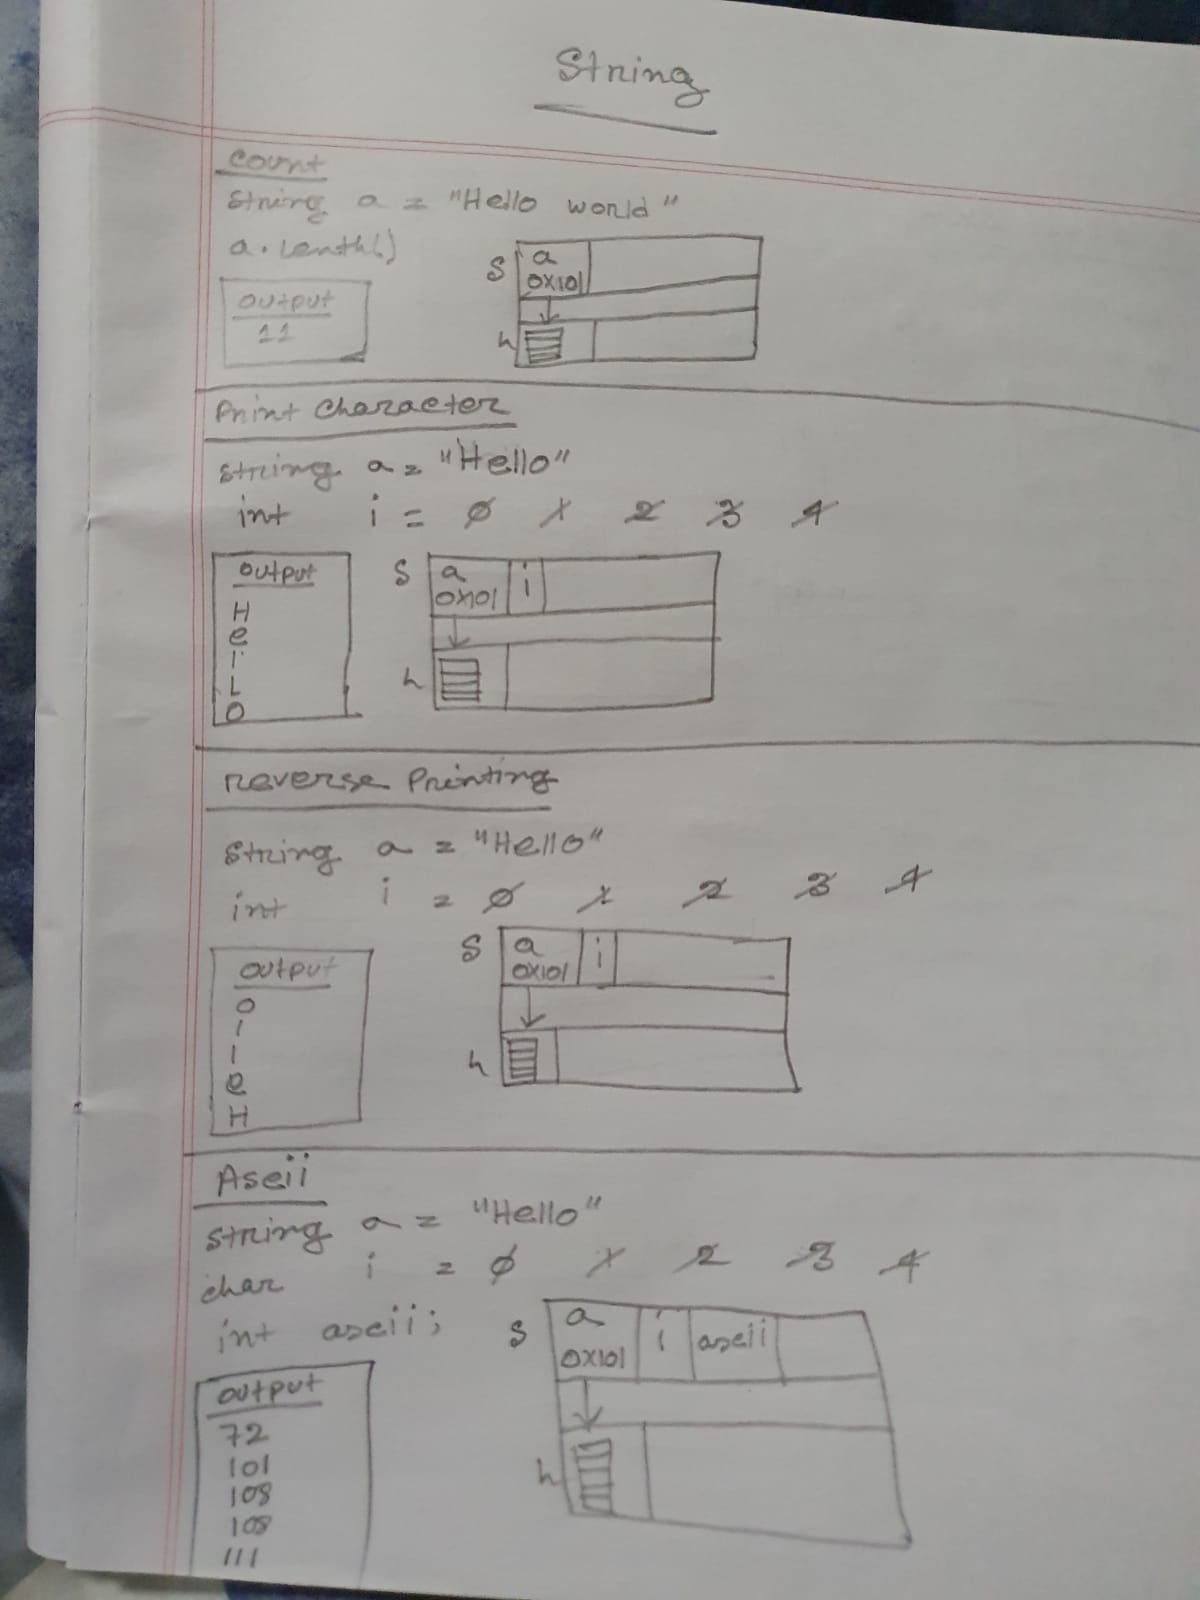 String
count
String a = "Hello world"
a.Lenth()
output
11
S
a
0x101
h
Print Character
String a = "Hello"
int i = 0 1 2 3 4
output
H
e
l
L
O
S
a
0x101
i
h
reverse Printing
String a = "Hello"
int i = 0 1 2 3 4
output
o
l
l
e
H
S
a
0x101
i
h
Aseii
String a = "Hello"
char i = 0 1 2 3 4
int aseii;
output
72
101
108
108
111
S
a
0x101
i
aseii
h